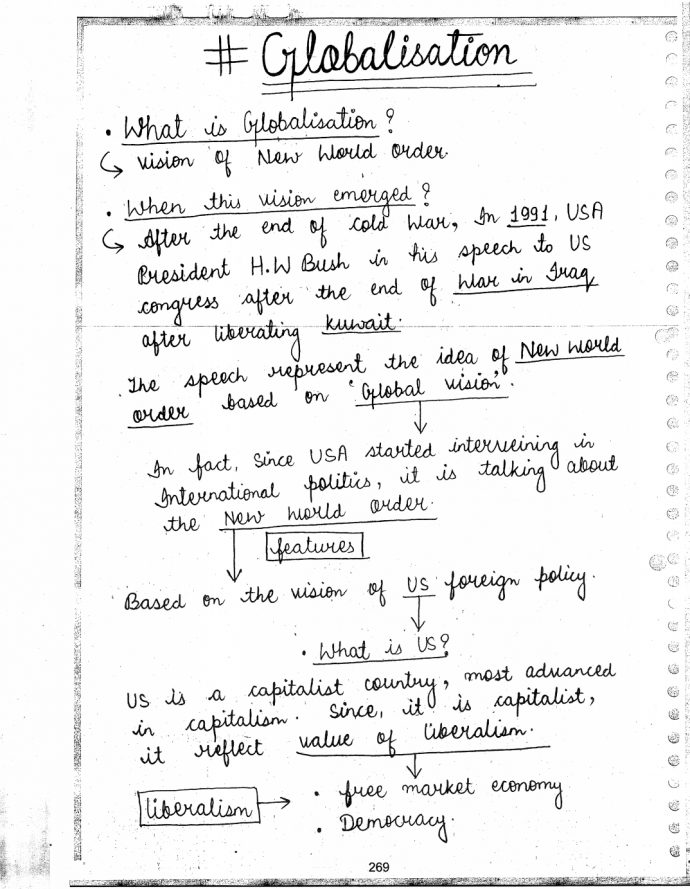 # Globalisation
• What is Globalisation?
↳ vision of New World order.
• When this vision emerged?
↳ After the end of cold war, In 1991, USA
President H.W Bush in his speech to US
congress after the end of War in Iraq
after liberating kuwait.
The speech represent the idea of New world
order based on 'Global vision'.
In fact, since USA started interveining in
International politics, it is talking about
the New world order.
features
Based on the vision of US foreign policy.
• What is US?
US is a capitalist country, most advanced
in capitalism. Since, it is capitalist,
it reflect value of liberalism.
liberalism → • free market economy
• Democracy.
269